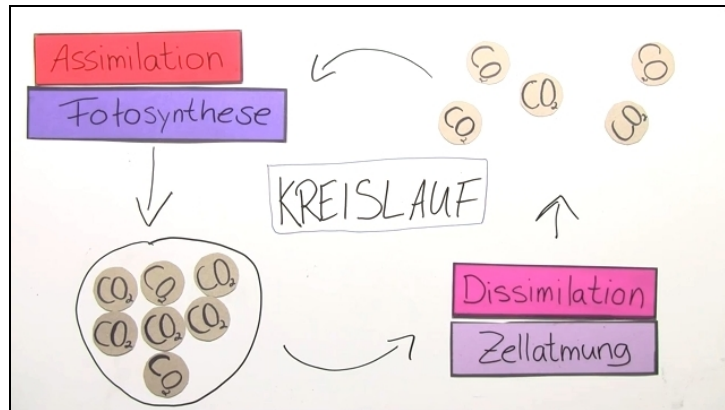 Assimilation
Fotosynthese
CO₂
CO₂
CO₂
CO₂
CO₂
KREISLAUF
CO₂ CO₂ CO₂
CO₂ CO₂ CO₂
CO₂
Dissimilation
Zellatmung